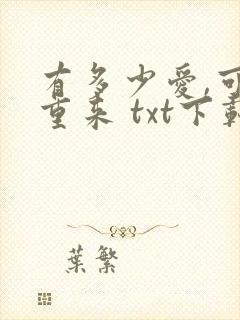 有多少愛,可
重来 txt下載
葉繁